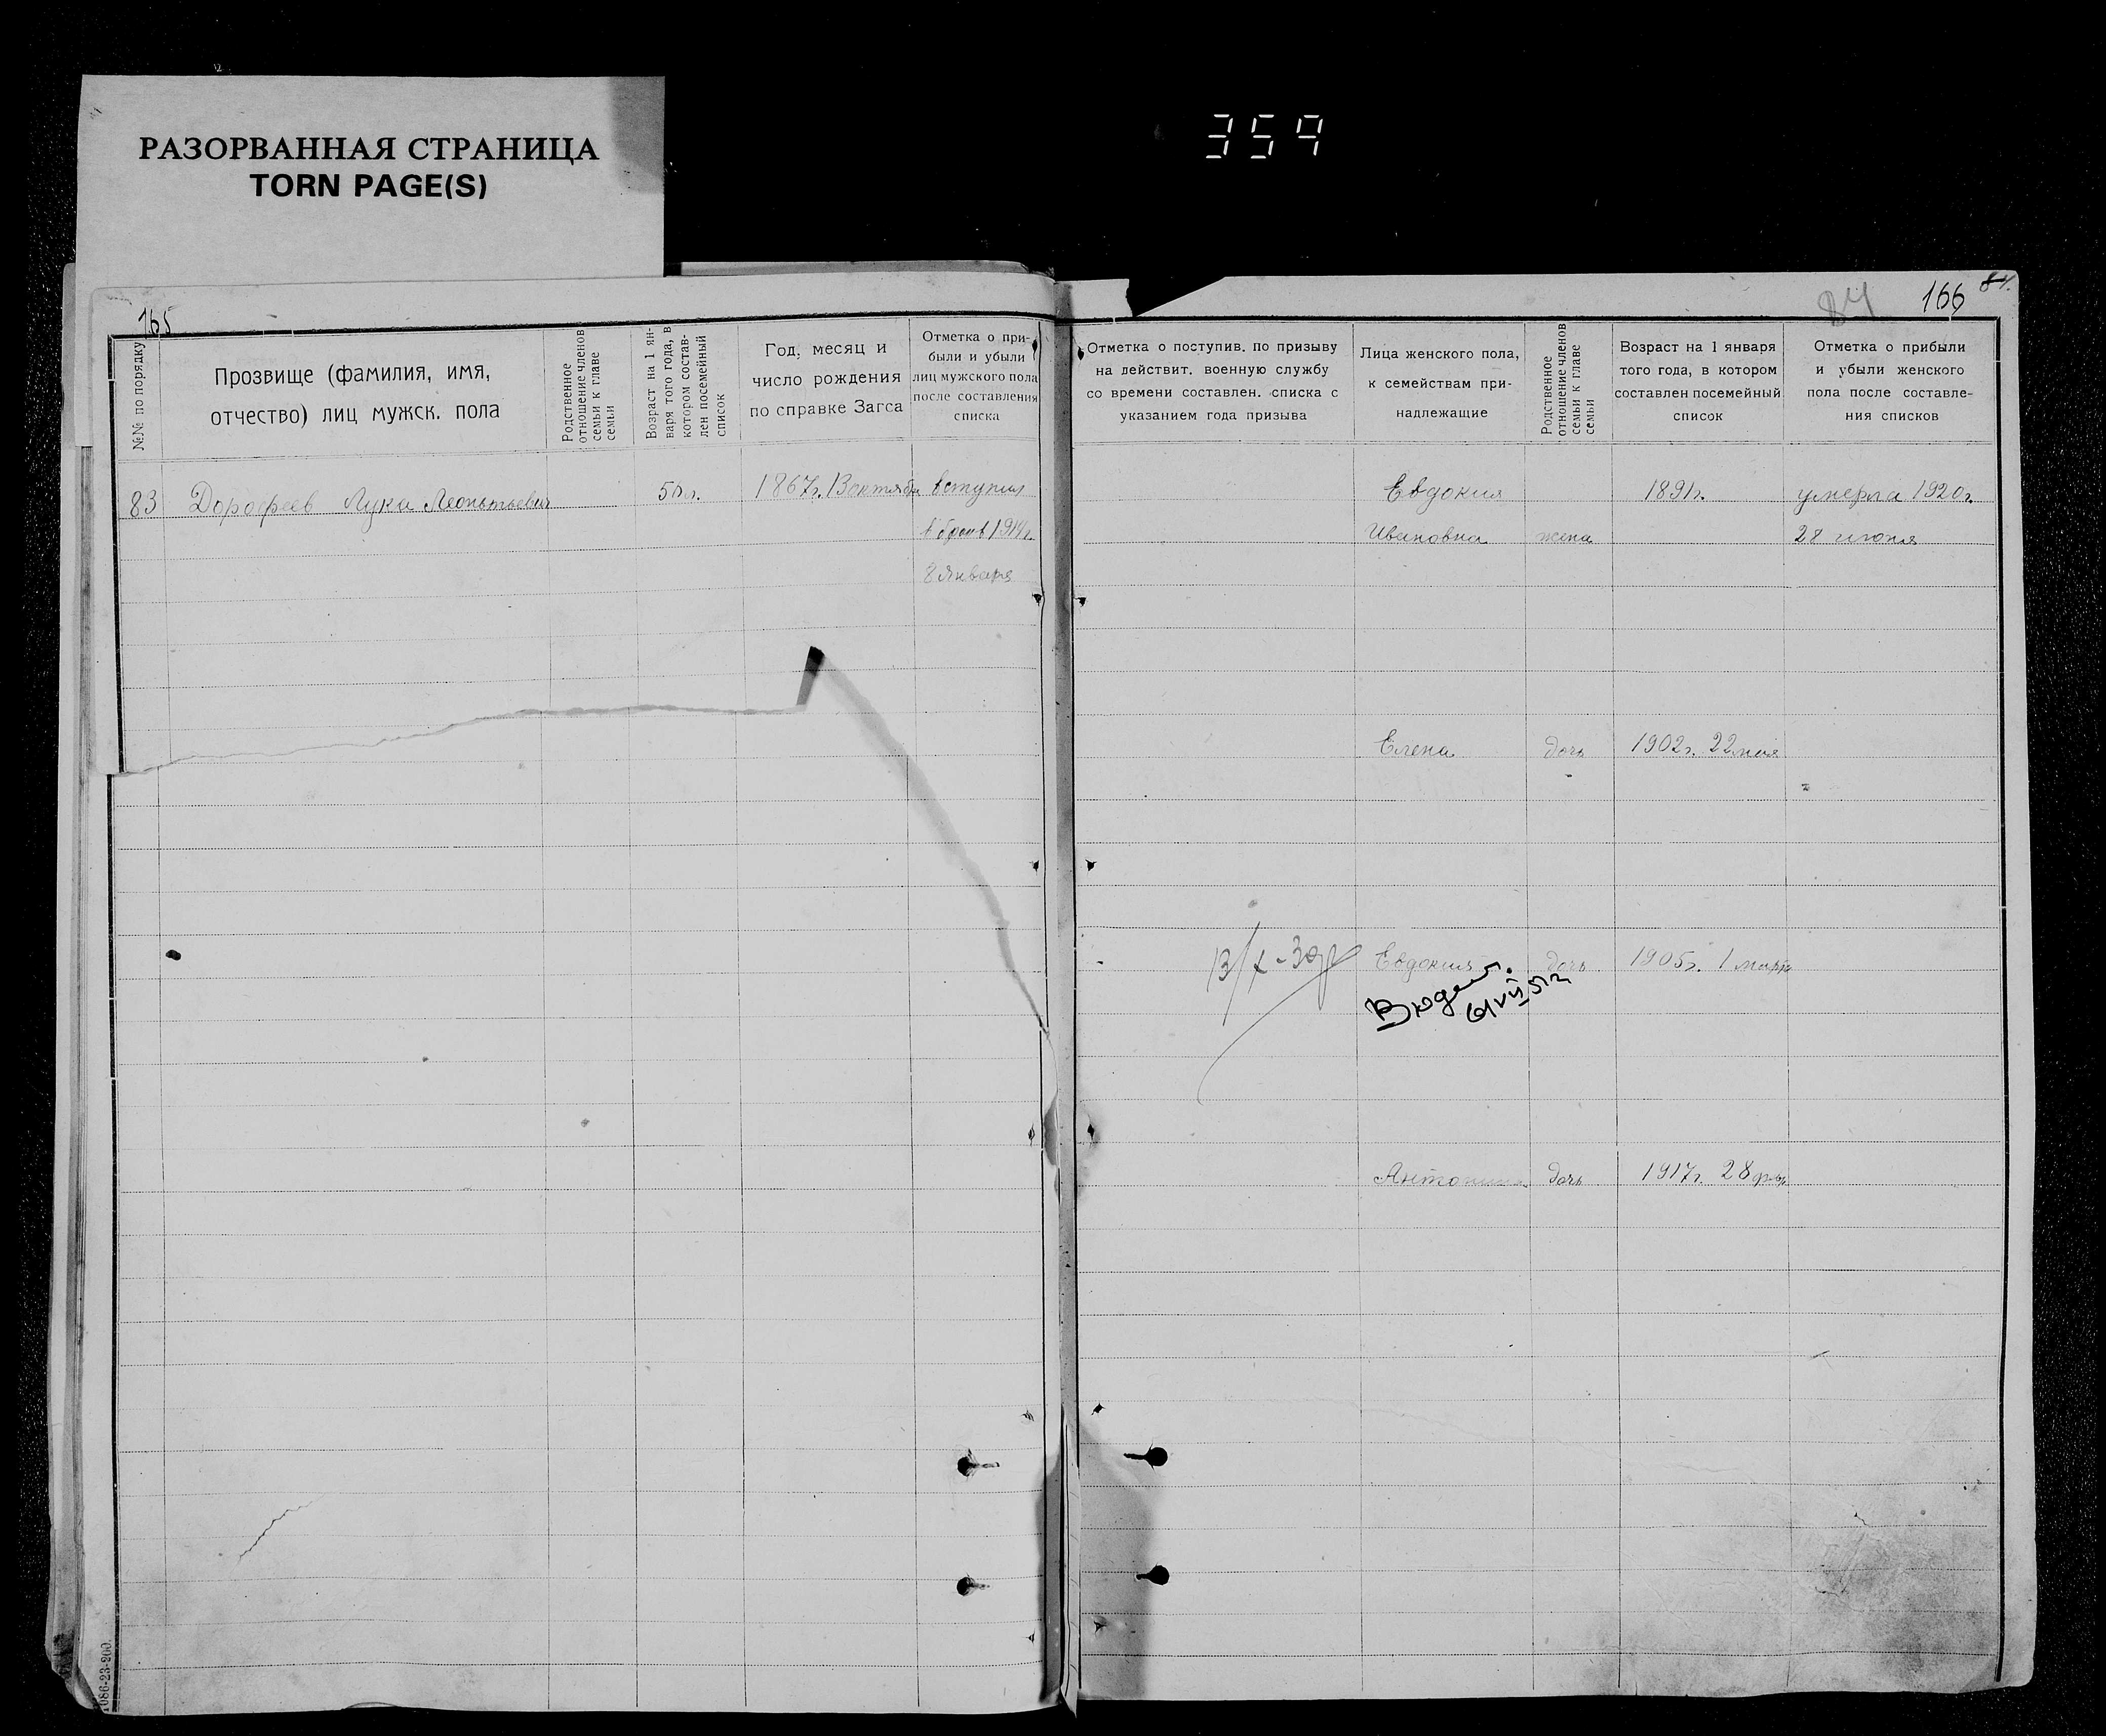 РАЗОРВАННАЯ СТРАНИЦА
TORN PAGE(S)
359
165
№№ по порядку
Прозвище (фамилия, имя,
отчество) лиц мужск. пола
Родственное
отношение членов
семьи к главе
семьи
Возраст на 1 ян-
варя того года, в
котором состав-
лен посемейный
список
Год, месяц и
число рождения
по справке Загса
Отметка о при-
были и убыли
лиц мужского пола
после составления
списка
83 Дорофеев Лука Леонтьевич 50 л. 1867г. 13 октября вступил
в брак в 1914г.
8 января
1086-23-200.
84 166 84.
Отметка о поступив. по призыву
на действит. военную службу
со времени составлен. списка с
указанием года призыва
Лица женского пола,
к семействам при-
надлежащие
Родственное
отношение членов
семьи к главе
семьи
Возраст на 1 января
того года, в котором
составлен посемейный
список
Отметка о прибыли
и убыли женского
пола после составле-
ния списков
Евдокия 1891г. умерла 1920г.
Ивановна жена 28 июня
Елена дочь 1902г. 22 мая
Евдокия дочь 1905г. 1 марта
Антонина дочь 1917г. 28 фев